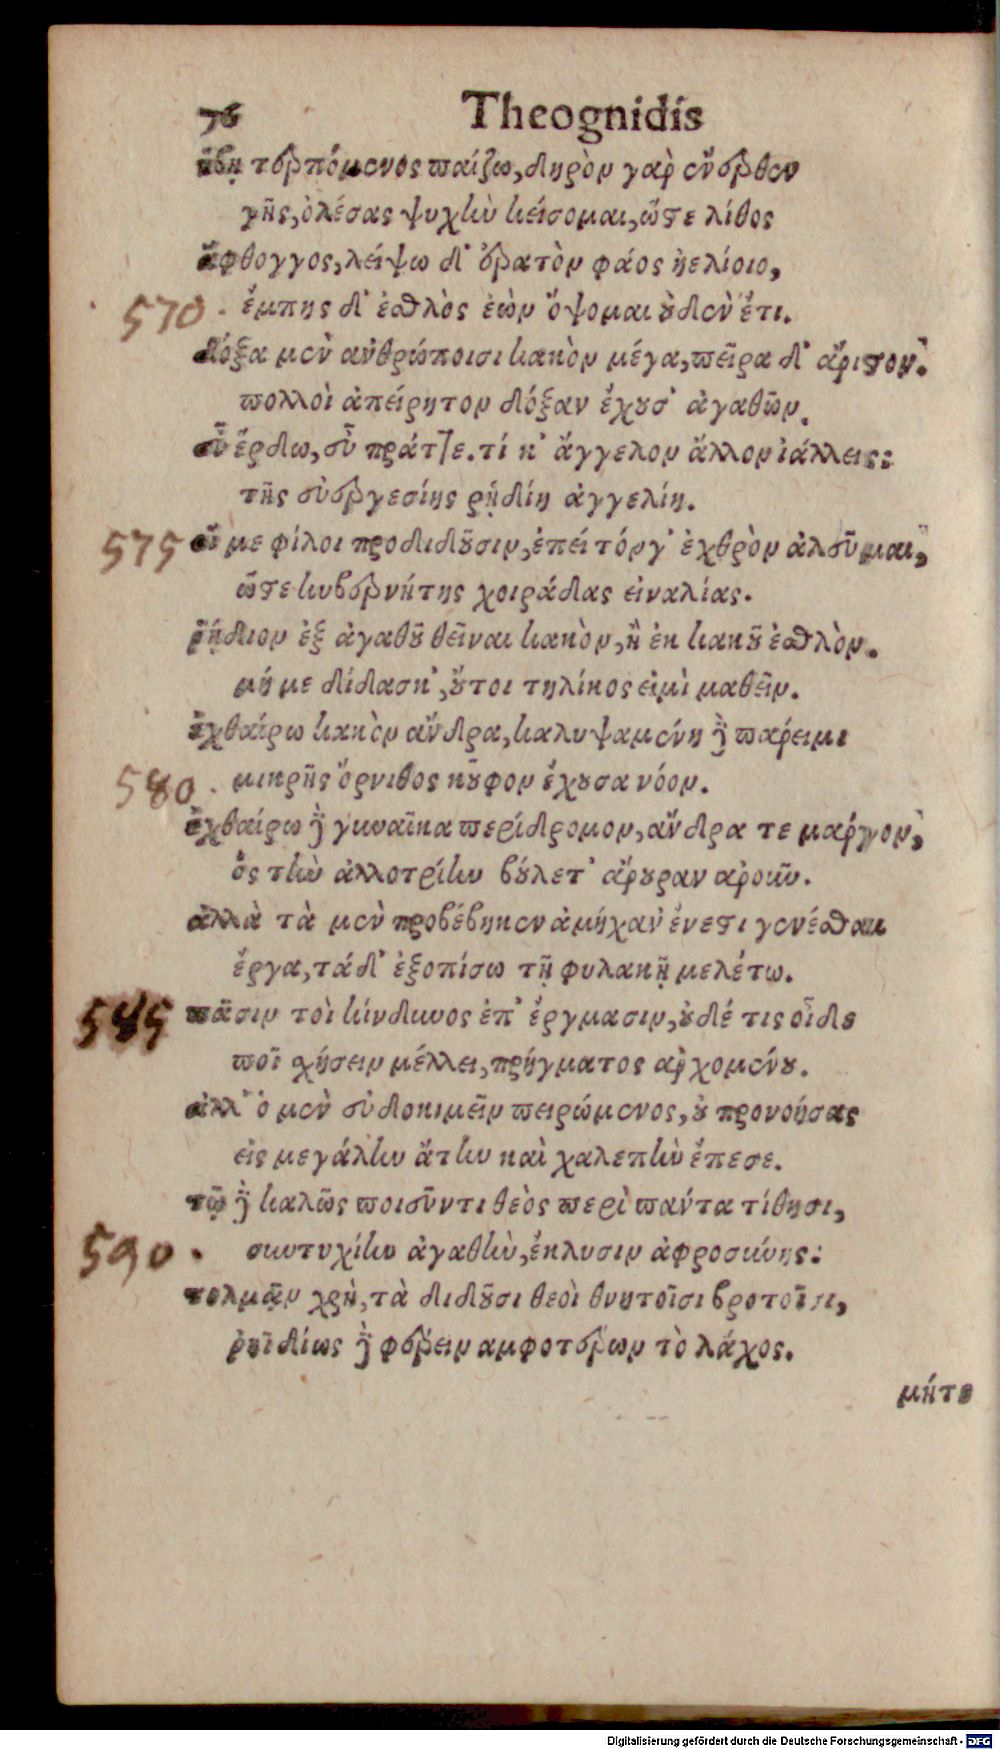 76 Theognidis
ἥβῃ τερπόμενος παίζω, δηρὸν γὰρ ἔνερθεν
γῆς, ὀλέσας ψυχὴν κείσομαι, ὥστε λίθος
ἄφθογγος, λείψω δ' ἐρατὸν φάος ἠελίοιο,
570. ἔμπης δ' ἐσθλὸς ἐὼν ὄψομαι οὐδὲν ἔτι.
δόξα μὲν ἀνθρώποισι κακὸν μέγα, πεῖρα δ' ἄριστον.
πολλοὶ ἀπείρητον δόξαν ἔχουσ' ἀγαθῶν.
εὖ ἔρδω, εὖ πράττε. τί κ' ἄγγελον ἄλλον ἰάλλεις:
τῆς εὐεργεσίης ῥηδίη ἀγγελίη.
575 οἵ με φίλοι προδιδοῦσιν, ἐπεί τόνγ' ἐχθρὸν ἀλεῦμαι,
ὥστε κυβερνήτης χοιράδας εἰναλίας.
ῥήδιον ἐξ ἀγαθοῦ θεῖναι κακὸν, ἢ ἐκ κακοῦ ἐσθλὸν.
μή με δίδασκ', οὔτοι τηλίκος εἰμὶ μαθεῖν.
ἐχθαίρω κακὸν ἄνδρα, καλυψαμένη δὲ πάρειμι
580. μικρῆς ὄρνιθος κοῦφον ἔχουσα νόον.
ἐχθαίρω δὲ γυναῖκα περίδρομον, ἄνδρα τε μάργον,
ὅς τὴν ἀλλοτρίην βούλετ' ἄρουραν ἀροῦν.
ἀλλὰ τὰ μὲν προβέβηκεν ἀμήχαν' ἔνεστι γενέσθαι
ἔργα, τάδ' ἐξοπίσω τῇ φυλακῇ μελέτω.
585 πᾶσιν τοὶ κίνδυνος ἐπ' ἔργμασιν, οὐδέ τις οἶδε
ποῖ σχήσειν μέλλει, πρήγματος ἀρχομένου.
ἀλλ' ὁ μὲν εὐδοκιμεῖν πειρώμενος, οὐ προνοήσας
εἰς μεγάλην ἄτην καὶ χαλεπὴν ἔπεσε.
τῷ δὲ καλῶς ποιεῦντι θεὸς περὶ πάντα τίθησι,
590. συντυχίην ἀγαθὴν, ἔκλυσιν ἀφροσύνης:
τολμᾷν χρὴ, τὰ διδοῦσι θεοὶ θνητοῖσι βροτοῖσι,
ῥηϊδίως δὲ φέρειν αμφοτέρων τὸ λάχος.
μήτε
Digitalisierung gefördert durch die Deutsche Forschungsgemeinschaft - DFG